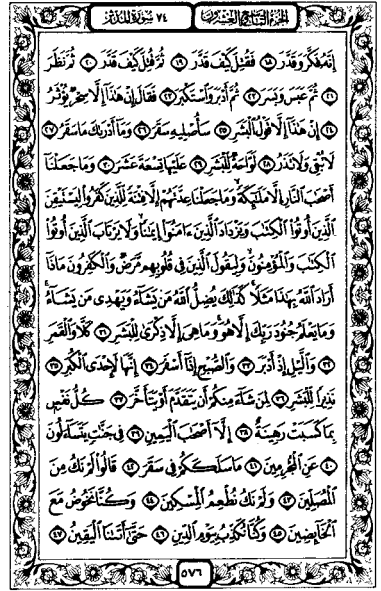 ٧٤ سورة المدثر الجزء التاسع والعشرون
إِنَّهُ فَكَّرَ وَقَدَّرَ ١٨ فَقُتِلَ كَيْفَ قَدَّرَ ١٩ ثُمَّ قُتِلَ كَيْفَ قَدَّرَ ٢٠ ثُمَّ نَظَرَ
٢١ ثُمَّ عَبَسَ وَبَسَرَ ٢٢ ثُمَّ أَدْبَرَ وَٱسْتَكْبَرَ ٢٣ فَقَالَ إِنْ هَٰذَآ إِلَّا سِحْرٌ يُؤْثَرُ
٢٤ إِنْ هَٰذَآ إِلَّا قَوْلُ ٱلْبَشَرِ ٢٥ سَأُصْلِيهِ سَقَرَ ٢٦ وَمَآ أَدْرَىٰكَ مَا سَقَرُ ٢٧
لَا تُبْقِى وَلَا تَذَرُ ٢٨ لَوَّاحَةٌ لِّلْبَشَرِ ٢٩ عَلَيْهَا تِسْعَةَ عَشَرَ ٣٠ وَمَا جَعَلْنَآ
أَصْحَٰبَ ٱلنَّارِ إِلَّا مَلَٰٓئِكَةً وَمَا جَعَلْنَا عِدَّتَهُمْ إِلَّا فِتْنَةً لِّلَّذِينَ كَفَرُوا۟ لِيَسْتَيْقِنَ
ٱلَّذِينَ أُوتُوا۟ ٱلْكِتَٰبَ وَيَزْدَادَ ٱلَّذِينَ ءَامَنُوٓا۟ إِيمَٰنًا وَلَا يَرْتَابَ ٱلَّذِينَ أُوتُوا۟
ٱلْكِتَٰبَ وَٱلْمُؤْمِنُونَ وَلِيَقُولَ ٱلَّذِينَ فِى قُلُوبِهِم مَّرَضٌ وَٱلْكَٰفِرُونَ مَاذَآ
أَرَادَ ٱللَّهُ بِهَٰذَا مَثَلًا كَذَٰلِكَ يُضِلُّ ٱللَّهُ مَن يَشَآءُ وَيَهْدِى مَن يَشَآءُ
وَمَا يَعْلَمُ جُنُودَ رَبِّكَ إِلَّا هُوَ وَمَا هِىَ إِلَّا ذِكْرَىٰ لِلْبَشَرِ ٣١ كَلَّا وَٱلْقَمَرِ
٣٢ وَٱلَّيْلِ إِذْ أَدْبَرَ ٣٣ وَٱلصُّبْحِ إِذَآ أَسْفَرَ ٣٤ إِنَّهَا لَإِحْدَى ٱلْكُبَرِ ٣٥
نَذِيرًا لِّلْبَشَرِ ٣٦ لِمَن شَآءَ مِنكُمْ أَن يَتَقَدَّمَ أَوْ يَتَأَخَّرَ ٣٧ كُلُّ نَفْسٍۭ
بِمَا كَسَبَتْ رَهِينَةٌ ٣٨ إِلَّآ أَصْحَٰبَ ٱلْيَمِينِ ٣٩ فِى جَنَّٰتٍ يَتَسَآءَلُونَ
٤٠ عَنِ ٱلْمُجْرِمِينَ ٤١ مَا سَلَكَكُمْ فِى سَقَرَ ٤٢ قَالُوا۟ لَمْ نَكُ مِنَ
ٱلْمُصَلِّينَ ٤٣ وَلَمْ نَكُ نُطْعِمُ ٱلْمِسْكِينَ ٤٤ وَكُنَّا نَخُوضُ مَعَ
ٱلْخَآئِضِينَ ٤٥ وَكُنَّا نُكَذِّبُ بِيَوْمِ ٱلدِّينِ ٤٦ حَتَّىٰٓ أَتَىٰنَا ٱلْيَقِينُ ٤٧
٥٧٦